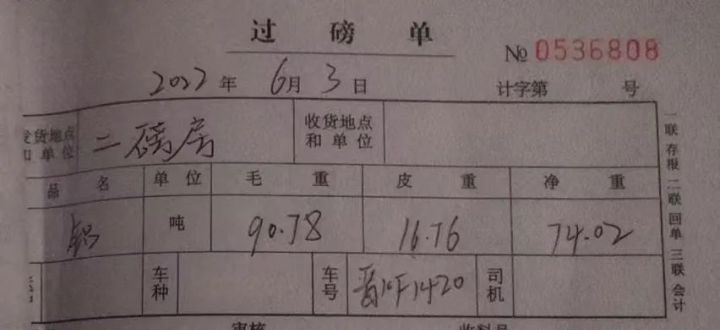 过磅单
№ 0536808
2022年6月3日 计字第 号
发货地点和单位 二磅房 收货地点和单位
品名 单位 毛重 皮重 净重
吨 90.78 16.76 74.02
车种 车号 司机
审核 收料员
一联存根 二联回单 三联会计